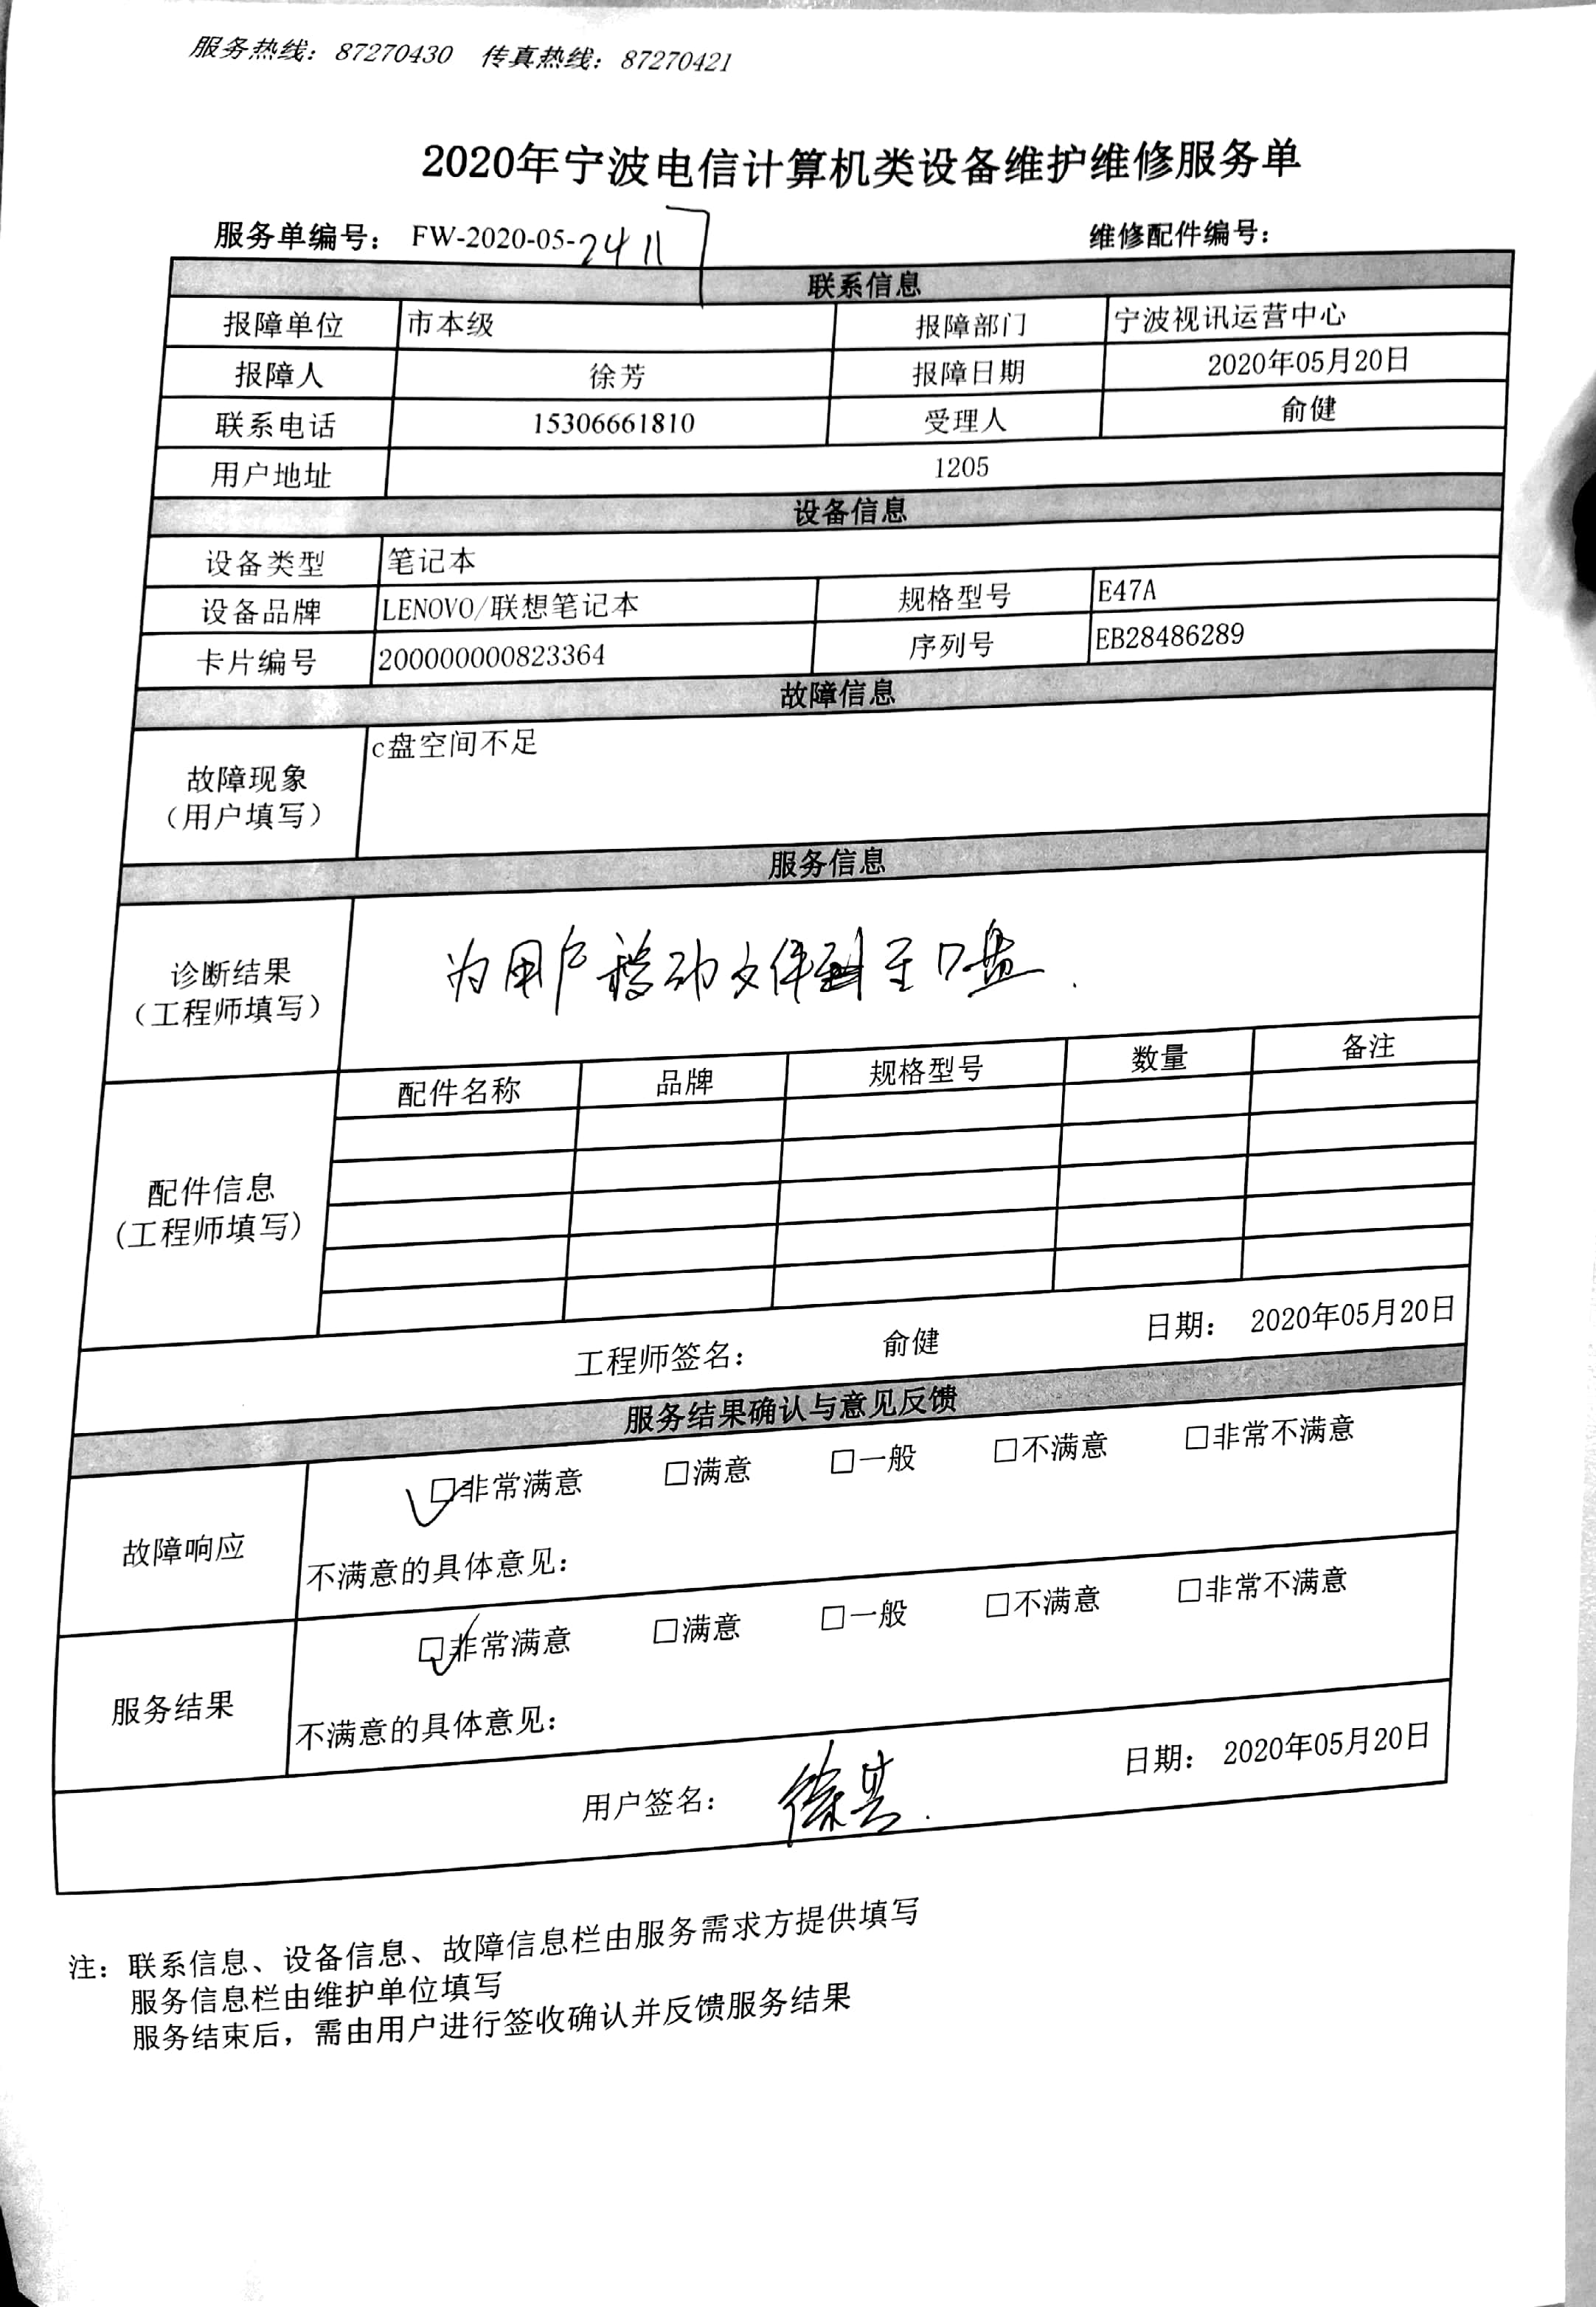 服务热线：87270430 传真热线：87270421
2020年宁波电信计算机类设备维护维修服务单
服务单编号： FW-2020-05-24117 维修配件编号：
联系信息
报障单位 市本级 报障部门 宁波视讯运营中心
报障人 徐芳 报障日期 2020年05月20日
联系电话 15306661810 受理人 俞健
用户地址 1205
设备信息
设备类型 笔记本
设备品牌 LENOVO/联想笔记本 规格型号 E47A
卡片编号 200000000823364 序列号 EB28486289
故障信息
故障现象 c盘空间不足
（用户填写）
服务信息
诊断结果 为用户移动文件至D盘.
（工程师填写）
配件名称 品牌 规格型号 数量 备注
配件信息
(工程师填写)
工程师签名： 俞健 日期： 2020年05月20日
服务结果确认与意见反馈
□非常满意 □满意 □一般 □不满意 □非常不满意
故障响应
不满意的具体意见：
□非常满意 □满意 □一般 □不满意 □非常不满意
服务结果
不满意的具体意见：
用户签名： 徐 日期： 2020年05月20日
注：联系信息、设备信息、故障信息栏由服务需求方提供填写
服务信息栏由维护单位填写
服务结束后，需由用户进行签收确认并反馈服务结果